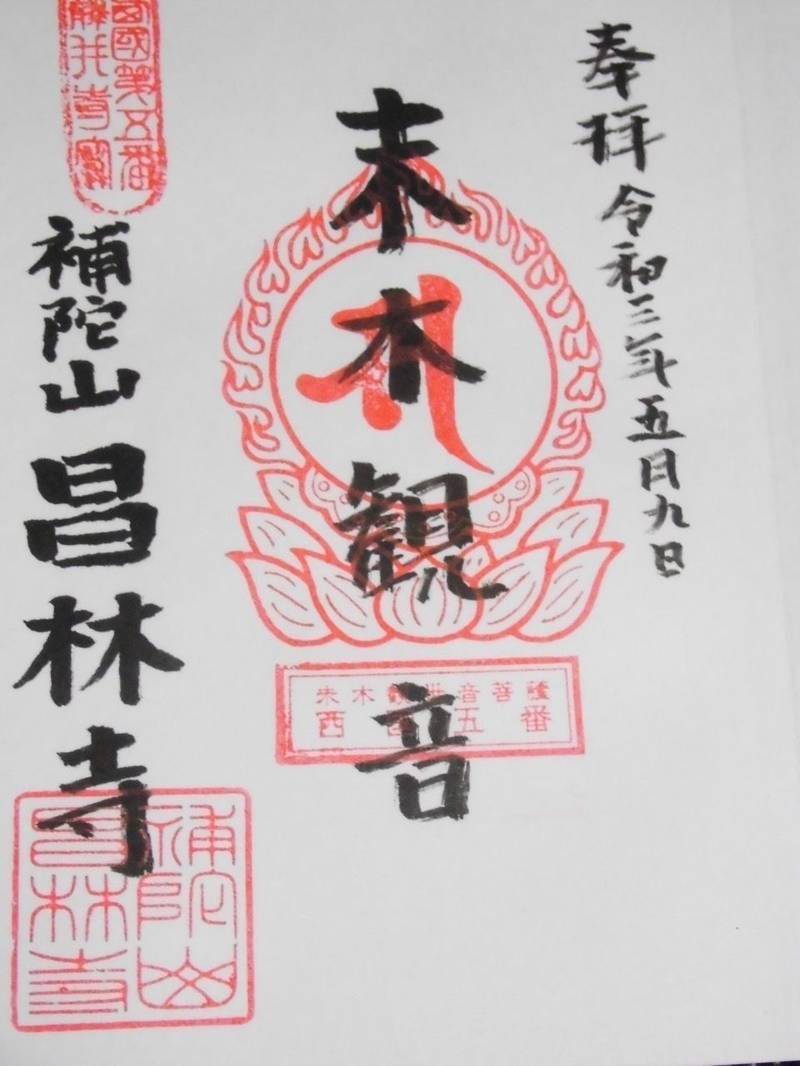 奉拝 令和三年五月九日
末木観音
末木観世音菩薩
西国五番
補陀山 昌林寺
補陀山
昌林寺